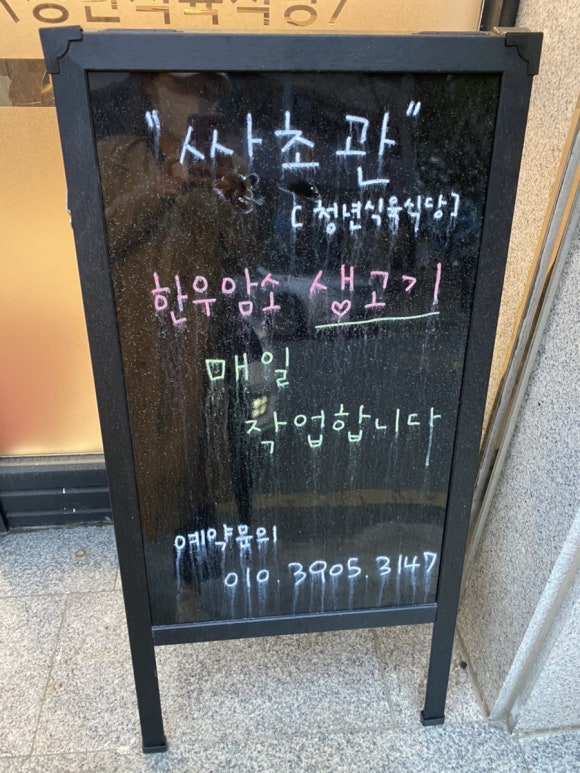 청년식육식당>
"사초관"
[청년식육식당]
한우암소 생고기
매일
작업합니다
예약문의
010.3905.3147